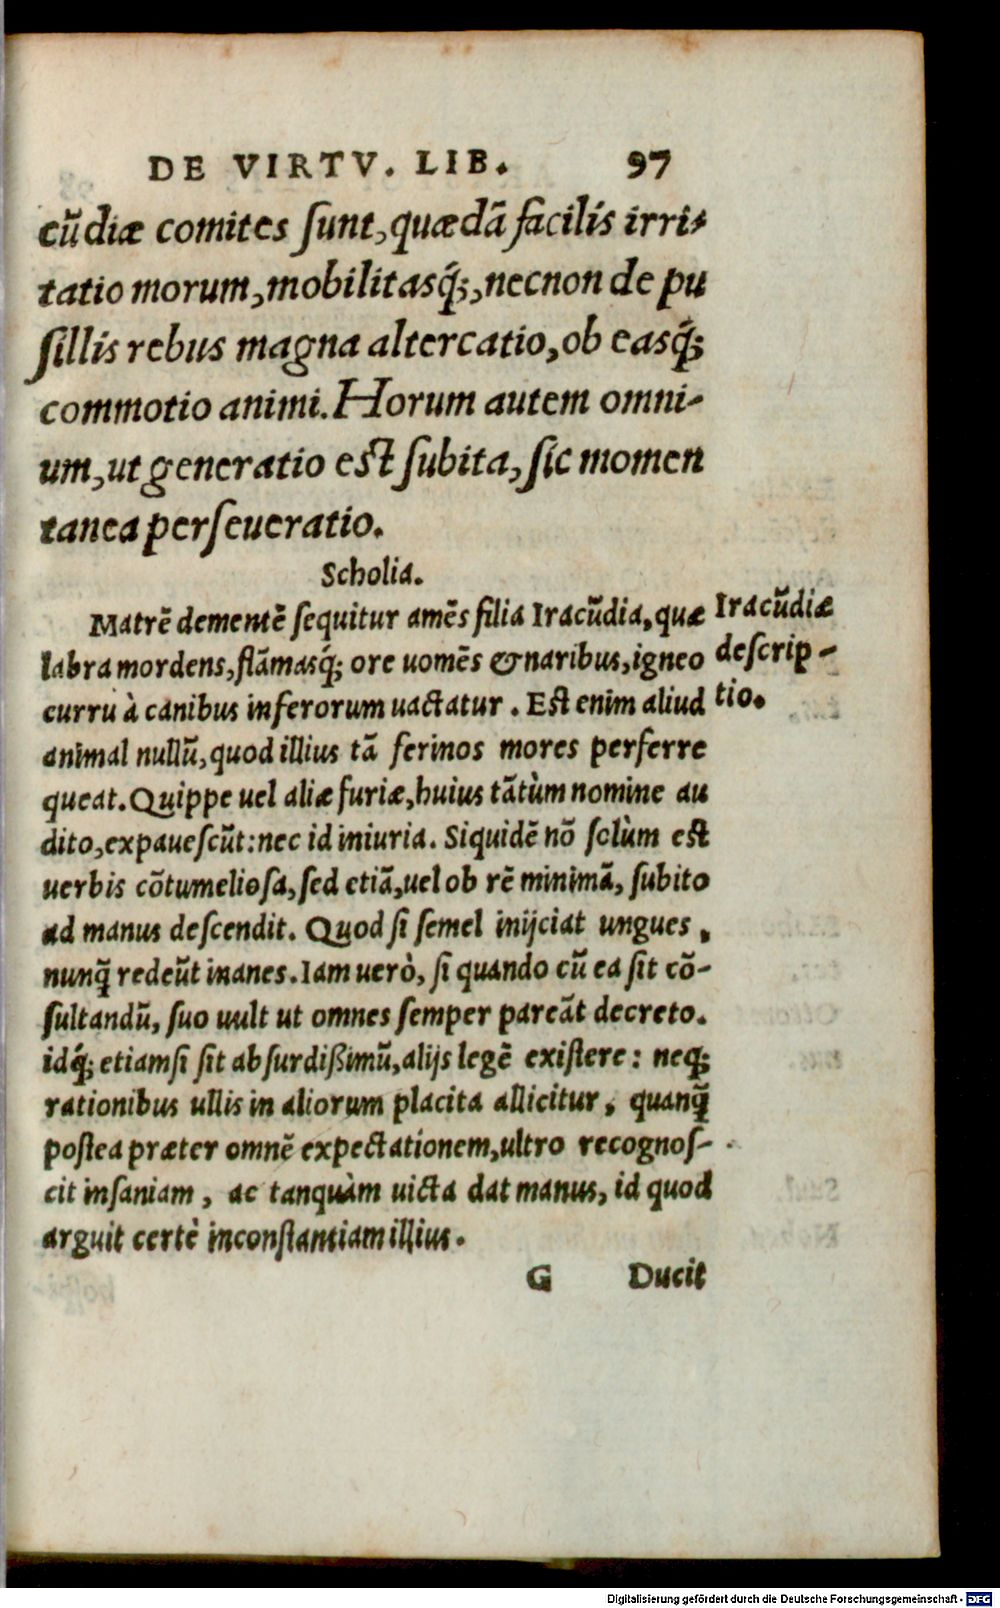 DE VIRTV. LIB. 97
cũdiæ comites ſunt, quædã facilis irri-
tatio morum, mobilitasq́;, necnon de pu
ſillis rebus magna altercatio, ob easq́;
commotio animi. Horum autem omni-
um, ut generatio eſt ſubita, ſic momen
tanea perſeueratio.
Scholia.
Matrẽ dementẽ ſequitur amẽs filia Iracũdia, quæ
labra mordens, flãmasq́; ore uomẽs & naribus, igneo
curru à canibus inferorum uactatur. Eſt enim aliud
animal nullũ, quod illius tã ferinos mores perferre
queat. Quippe uel aliæ furiæ, huius tãtùm nomine au
dito, expaueſcũt: nec id iniuria. Siquidẽ nõ ſolùm eſt
uerbis cõtumelioſa, ſed etiã, uel ob rẽ minimã, ſubito
ad manus deſcendit. Quod ſi ſemel inijciat ungues,
nunq̃ redeũt inanes. Iam uerò, ſi quando cũ ea ſit cõ-
ſultandũ, ſuo uult ut omnes ſemper pareãt decreto.
idq́; etiamſi ſit abſurdißimũ, alijs legẽ exiſtere: neq;
rationibus ullis in aliorum placita allicitur, quanq̃
poſtea præter omnẽ expectationem, ultro recognoſ-
cit inſaniam, ac tanquàm uicta dat manus, id quod
arguit certè inconſtantiam illius.
Iracũdiæ
deſcrip-
tio.
G Ducit
Digitalisierung gefördert durch die Deutsche Forschungsgemeinschaft - DFG